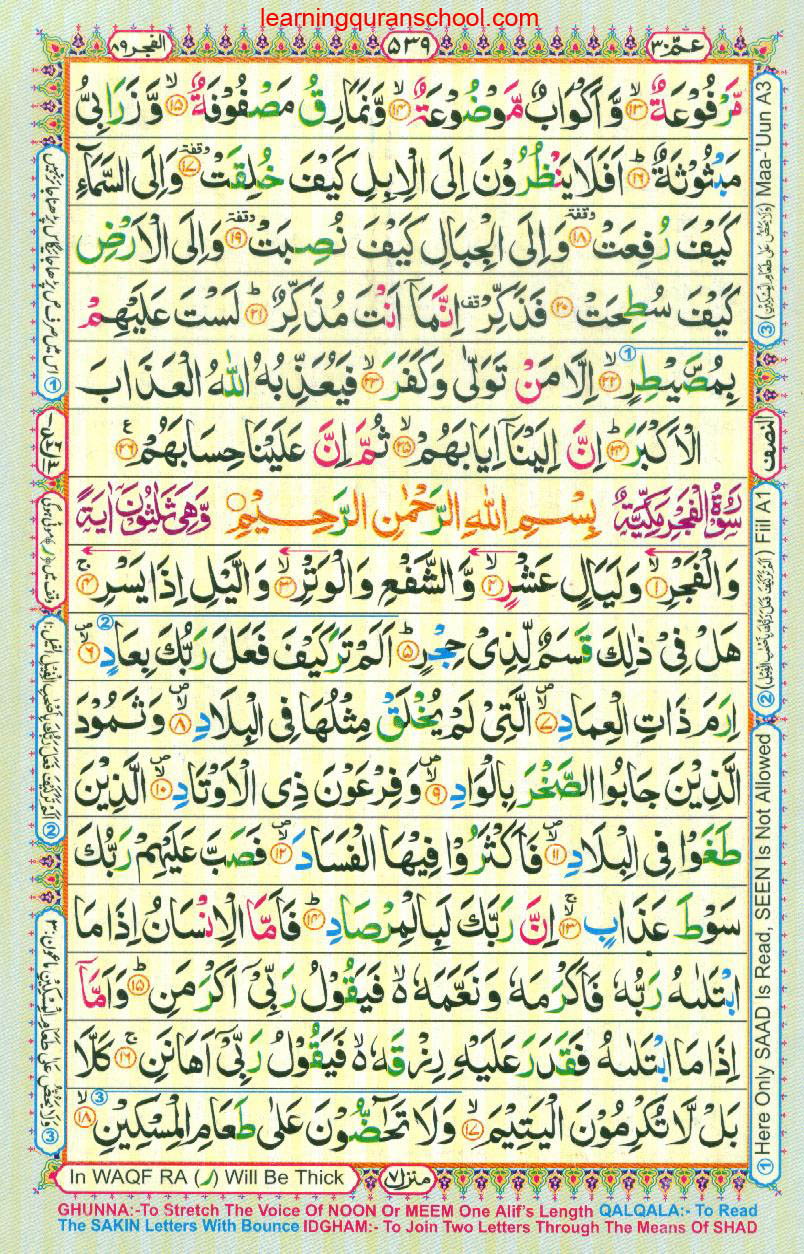 learningquranschool.com
عمّ ٣٠
٥٣٩
الفجر ٨٩
مَّرْفُوْعَةٌ ۙ﴿۱۳﴾ وَّ اَكْوَابٌ مَّوْضُوْعَةٌ ۙ﴿۱۴﴾ وَّنَمَارِقُ مَصْفُوْفَةٌ ۙ﴿۱۵﴾ وَّ زَرَابِیُّ
مَبْثُوْثَةٌ ؕ﴿۱۶﴾ اَفَلَا یَنْظُرُوْنَ اِلَی الْاِبِلِ كَیْفَ خُلِقَتْ ۥوقفة﴿۱۷﴾ وَاِلَی السَّمَآءِ
كَیْفَ رُفِعَتْ ۥوقفة﴿۱۸﴾ وَاِلَی الْجِبَالِ كَیْفَ نُصِبَتْ ۥوقفة﴿۱۹﴾ وَاِلَی الْاَرْضِ
كَیْفَ سُطِحَتْ ۥ﴿۲۰﴾ فَذَكِّرْ ۫قف اِنَّمَاۤ اَنْتَ مُذَكِّرٌ ؕ﴿۲۱﴾ لَسْتَ عَلَیْهِمْ
بِمُصَۜیْطِرٍ ۙ﴿۲۲﴾ اِلَّا مَنْ تَوَلّٰی وَكَفَرَ ۙ﴿۲۳﴾ فَیُعَذِّبُهُ اللّٰهُ الْعَذَابَ
الْاَكْبَرَ ؕ﴿۲۴﴾ اِنَّ اِلَیْنَاۤ اِیَابَهُمْ ۙ﴿۲۵﴾ ثُمَّ اِنَّ عَلَیْنَا حِسَابَهُمْ ﴿۲۶﴾ ع
سُوْرَةُ الْفَجْرِ مَكِّیَّةٌ بِسْمِ اللّٰهِ الرَّحْمٰنِ الرَّحِیْمِ وَّهِیَ ثَلٰثُوْنَ اٰیَةً
وَالْفَجْرِ ۙ﴿۱﴾ وَلَیَالٍ عَشْرٍ ۙ﴿۲﴾ وَّالشَّفْعِ وَالْوَتْرِ ۙ﴿۳﴾ وَالَّیْلِ اِذَا یَسْرِ ۚ﴿۴﴾
هَلْ فِیْ ذٰلِكَ قَسَمٌ لِّذِیْ حِجْرٍ ؕ﴿۵﴾ اَلَمْ تَرَ كَیْفَ فَعَلَ رَبُّكَ بِعَادٍ ۪ۙ﴿۶﴾
اِرَمَ ذَاتِ الْعِمَادِ ۪ۙ﴿۷﴾ الَّتِیْ لَمْ یُخْلَقْ مِثْلُهَا فِی الْبِلَادِ ۪ۙ﴿۸﴾ وَ ثَمُوْدَ
الَّذِیْنَ جَابُوا الصَّخْرَ بِالْوَادِ ۪ۙ﴿۹﴾ وَ فِرْعَوْنَ ذِی الْاَوْتَادِ ۪ۙ﴿۱۰﴾ الَّذِیْنَ
طَغَوْا فِی الْبِلَادِ ۪ۙ﴿۱۱﴾ فَاَكْثَرُوْا فِیْهَا الْفَسَادَ ۪ۙ﴿۱۲﴾ فَصَبَّ عَلَیْهِمْ رَبُّكَ
سَوْطَ عَذَابٍ ۚۙ﴿۱۳﴾ اِنَّ رَبَّكَ لَبِالْمِرْصَادِ ؕ﴿۱۴﴾ فَاَمَّا الْاِنْسَانُ اِذَا مَا
ابْتَلٰىهُ رَبُّهٗ فَاَكْرَمَهٗ وَ نَعَّمَهٗ ۙ۬ فَیَقُوْلُ رَبِّیْۤ اَكْرَمَنِ ؕ﴿۱۵﴾ وَاَمَّاۤ
اِذَا مَا ابْتَلٰىهُ فَقَدَرَ عَلَیْهِ رِزْقَهٗ ۙ۬ فَیَقُوْلُ رَبِّیْۤ اَهَانَنِ ۚ﴿۱۶﴾ كَلَّا
بَلْ لَّا تُكْرِمُوْنَ الْیَتِیْمَ ۙ﴿۱۷﴾ وَلَا تَحٰٓضُّوْنَ عَلٰی طَعَامِ الْمِسْكِیْنِ ۙ﴿۱۸﴾
③ Maa-'Uun A3
النصف
② Fiil A1
① Here Only SAAD Is Read, SEEN Is Not Allowed
In WAQF RA (ر) Will Be Thick
منزل ٧
GHUNNA:-To Stretch The Voice Of NOON Or MEEM One Alif's Length QALQALA:- To Read
The SAKIN Letters With Bounce IDGHAM:- To Join Two Letters Through The Means Of SHAD